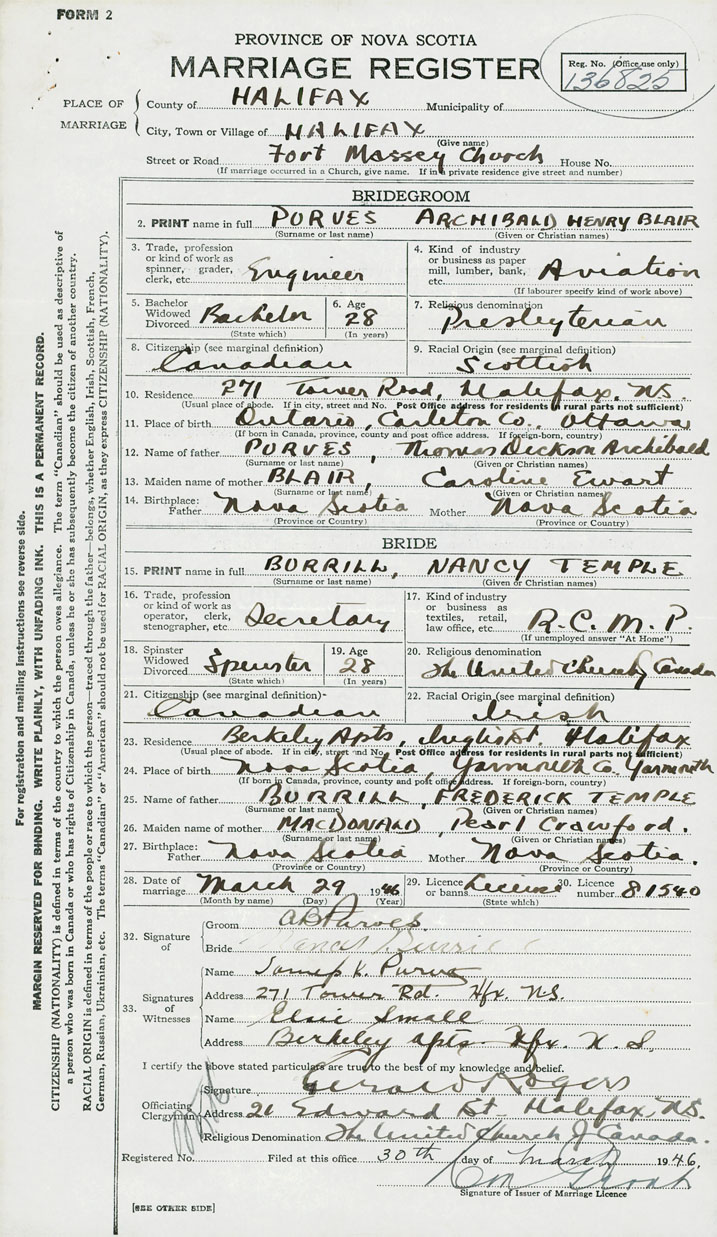 FORM 2
PROVINCE OF NOVA SCOTIA
MARRIAGE REGISTER
Reg. No. (Office use only)
136825
PLACE OF MARRIAGE
County of HALIFAX Municipality of
City, Town or Village of HALIFAX
(Give name)
Street or Road Fort Massey Church House No.
(If marriage occurred in a Church, give name. If in a private residence give street and number)
BRIDEGROOM
2. PRINT name in full PURVES ARCHIBALD HENRY BLAIR
(Surname or last name) (Given or Christian names)
3. Trade, profession or kind of work as spinner, grader, clerk, etc. Engineer
4. Kind of industry or business as paper mill, lumber, bank, etc. Aviation
(If labourer specify kind of work above)
5. Bachelor Widowed Divorced Bachelor
(State which)
6. Age 28
(In years)
7. Religious denomination Presbyterian
8. Citizenship (see marginal definition) Canadian
9. Racial Origin (see marginal definition) Scottish
10. Residence 271 Tower Road, Halifax, N.S.
(Usual place of abode. If in city, street and No. Post Office address for residents in rural parts not sufficient)
11. Place of birth Ontario, Carleton Co., Ottawa
(If born in Canada, province, county and post office address. If foreign-born, country)
12. Name of father PURVES, Thomas Dickson Archibald
(Surname or last name) (Given or Christian names)
13. Maiden name of mother BLAIR, Caroline Ewart
(Surname or last name) (Given or Christian names)
14. Birthplace: Father Nova Scotia Mother Nova Scotia
(Province or Country) (Province or Country)
BRIDE
15. PRINT name in full BURRILL, NANCY TEMPLE
(Surname or last name) (Given or Christian names)
16. Trade, profession or kind of work as operator, clerk, stenographer, etc. Secretary
17. Kind of industry or business as textiles, retail, law office, etc. R.C.M.P.
(If unemployed answer "At Home")
18. Spinster Widowed Divorced Spinster
(State which)
19. Age 28
(In years)
20. Religious denomination The United Church of Canada
21. Citizenship (see marginal definition) Canadian
22. Racial Origin (see marginal definition) Irish
23. Residence Berkeley Apts, Inglis St. Halifax
(Usual place of abode. If in city, street and No. Post Office address for residents in rural parts not sufficient)
24. Place of birth Nova Scotia, Yarmouth Co. Yarmouth
(If born in Canada, province, county and post office address. If foreign-born, country)
25. Name of father BURRILL, FREDERICK TEMPLE
(Surname or last name) (Given or Christian names)
26. Maiden name of mother MACDONALD, Pearl Crawford.
(Surname or last name) (Given or Christian names)
27. Birthplace: Father Nova Scotia Mother Nova Scotia.
(Province or Country) (Province or Country)
28. Date of marriage March 29 1946
(Month by name) (Day) (Year)
29. Licence or banns Licence
(State which)
30. Licence number 81540
32. Signature of
Groom AB Purves
Bride Nancy Burrill
33. Signatures of Witnesses
Name K. Purves
Address 271 Tower Rd. Hfx. N.S.
Name Elsie Small
Address Berkeley apts. Hfx. N.S.
I certify the above stated particulars are true to the best of my knowledge and belief.
Officiating Clergyman
Signature Gerald Rogers
Address 21 Edward St. Halifax, N.S.
Religious Denomination The United Church of Canada.
Registered No. Filed at this office 30th day of March 1946.
Signature of Issuer of Marriage Licence
[SEE OTHER SIDE]
For registration and mailing instructions see reverse side.
MARGIN RESERVED FOR BINDING. WRITE PLAINLY, WITH UNFADING INK. THIS IS A PERMANENT RECORD.
CITIZENSHIP (NATIONALITY) is defined in terms of the country to which the person owes allegiance. The term "Canadian" should be used as descriptive of
a person who was born in Canada or who has rights of Citizenship in Canada, unless he or she has subsequently become the citizen of another country.
RACIAL ORIGIN is defined in terms of the people or race to which the person—traced through the father—belongs, whether English, Irish, Scottish, French,
German, Russian, Ukrainian, etc. The terms "Canadian" or "American" should not be used for RACIAL ORIGIN, as they express CITIZENSHIP (NATIONALITY).